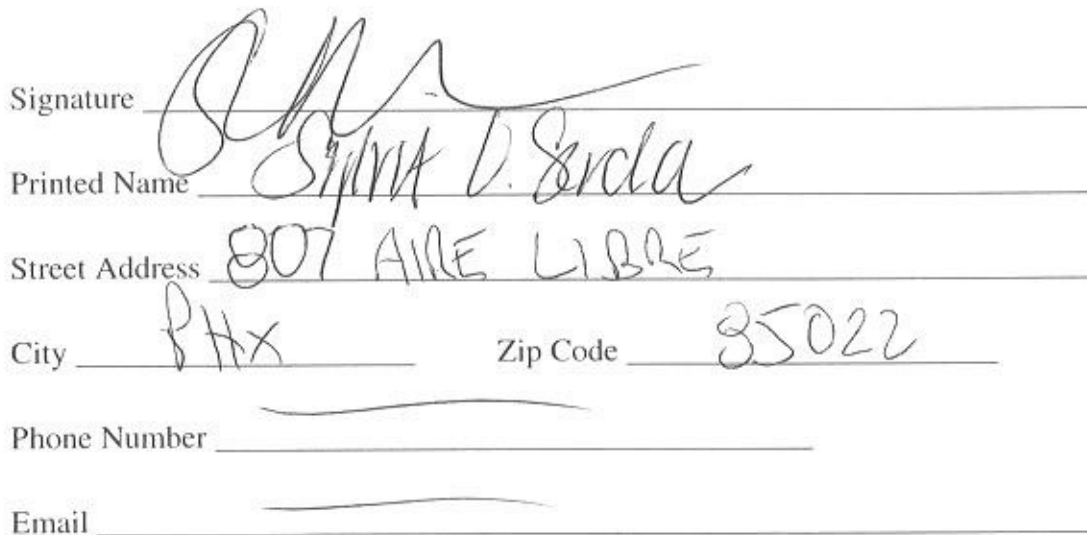 Signature
Printed Name D. Serda
Street Address 807 AIRE LIBRE
City PHX Zip Code 85022
Phone Number
Email